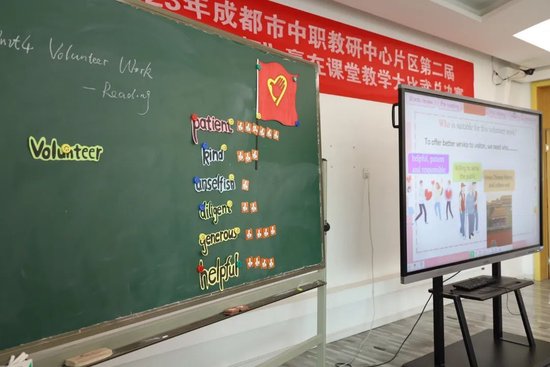 23年成都市中职教研中心片区第二届
课堂教学大比武总决赛
Unit4 Volunteer Work
— Reading
Volunteer
patient
kind
unselfish
diligent
generous
helpful
Who is suitable for this volunteer work?
To offer better service to visitors, we need who......
helpful, patient
and responsible